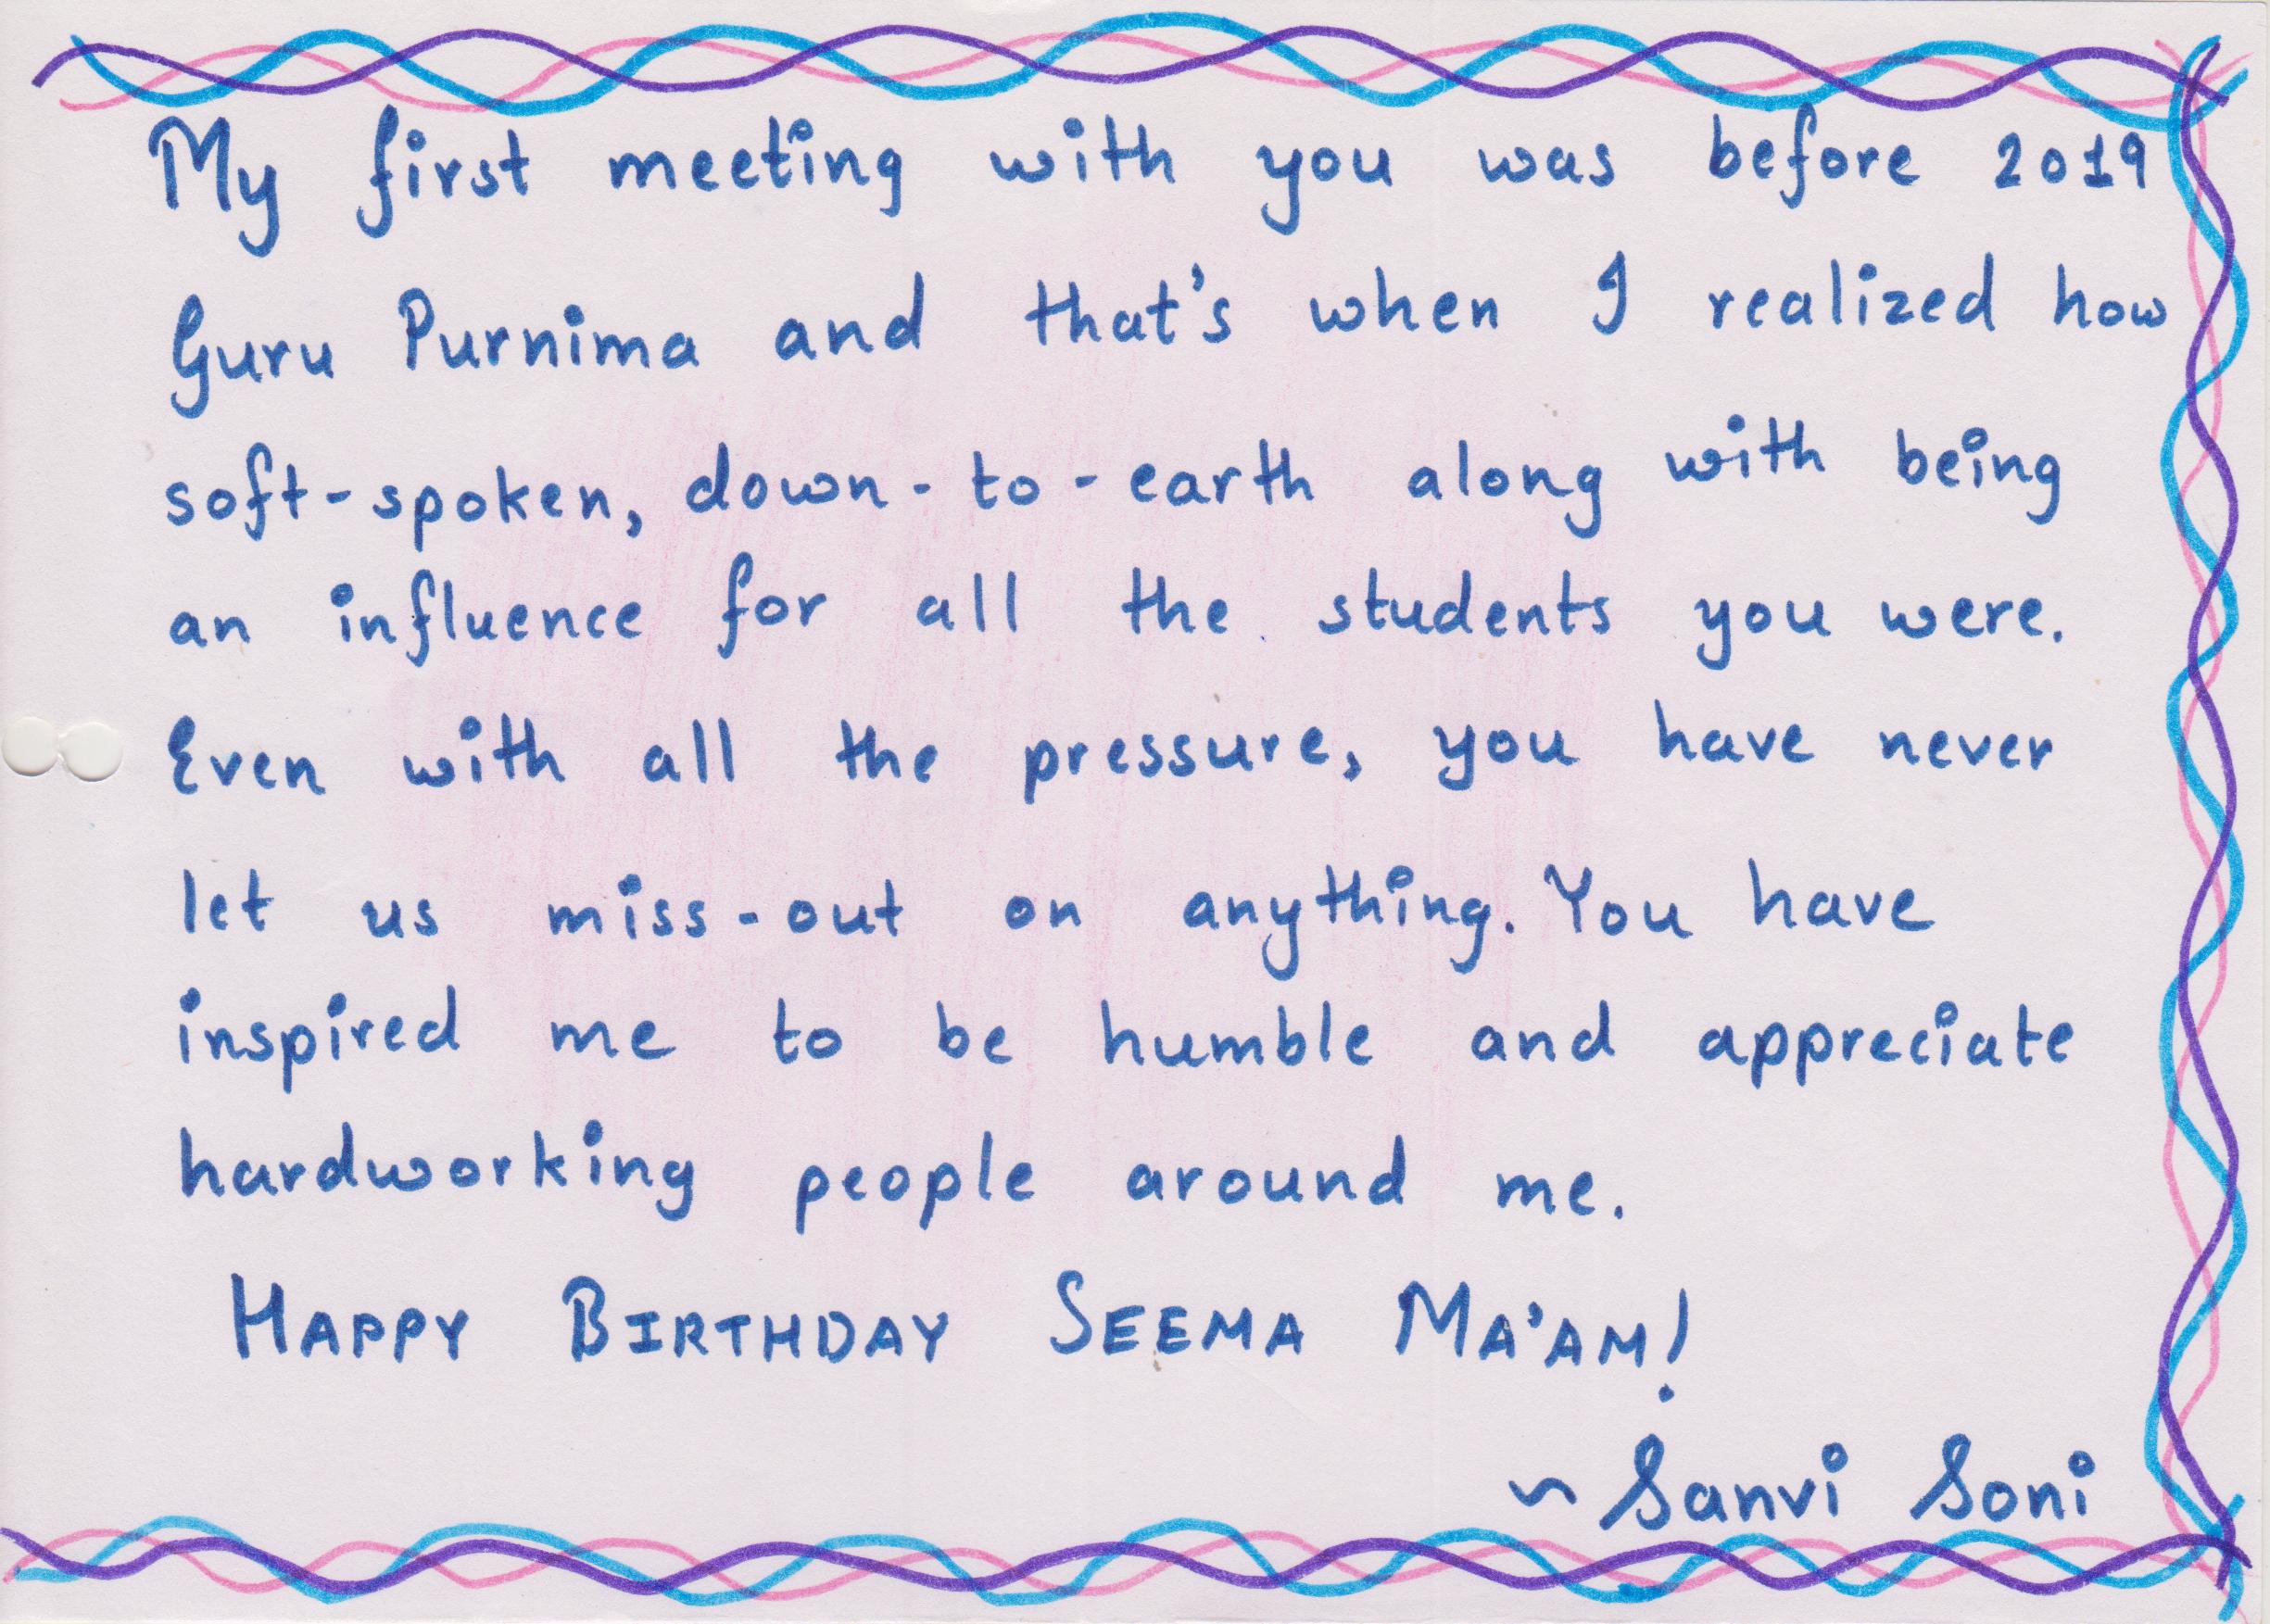 My first meeting with you was before 2019
Guru Purnima and that's when I realized how
soft-spoken, down-to-earth along with being
an influence for all the students you were.
Even with all the pressure, you have never
let us miss-out on anything. You have
inspired me to be humble and appreciate
hardworking people around me.
HAPPY BIRTHDAY SEEMA MA'AM!
~ Sanvi Soni